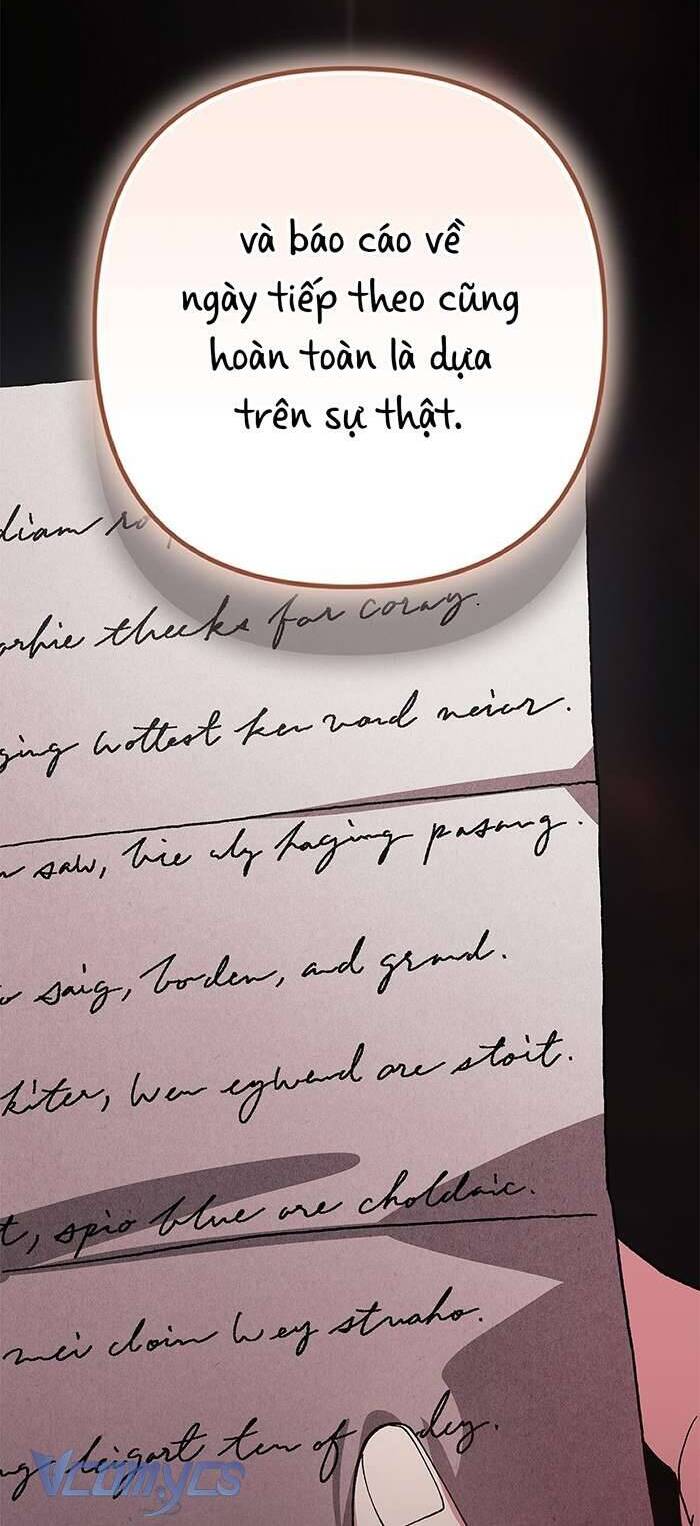 và báo cáo về
ngày tiếp theo cũng
hoàn toàn là dựa
trên sự thật.
diam
thecks for coray.
wottest ken vord neior.
saw, bie aly haging pasang.
saig, borden, and grand.
kiter, wen eywend are stoit.
t, spio blue are choldaic.
mei cloin wey struaho.
heigart ten of dey.
Vcomycs